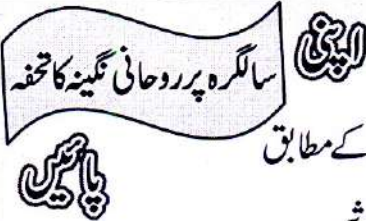 اپنی
سالگرہ پر روحانی نگینہ کا تحفہ
کے مطابق
پائیں